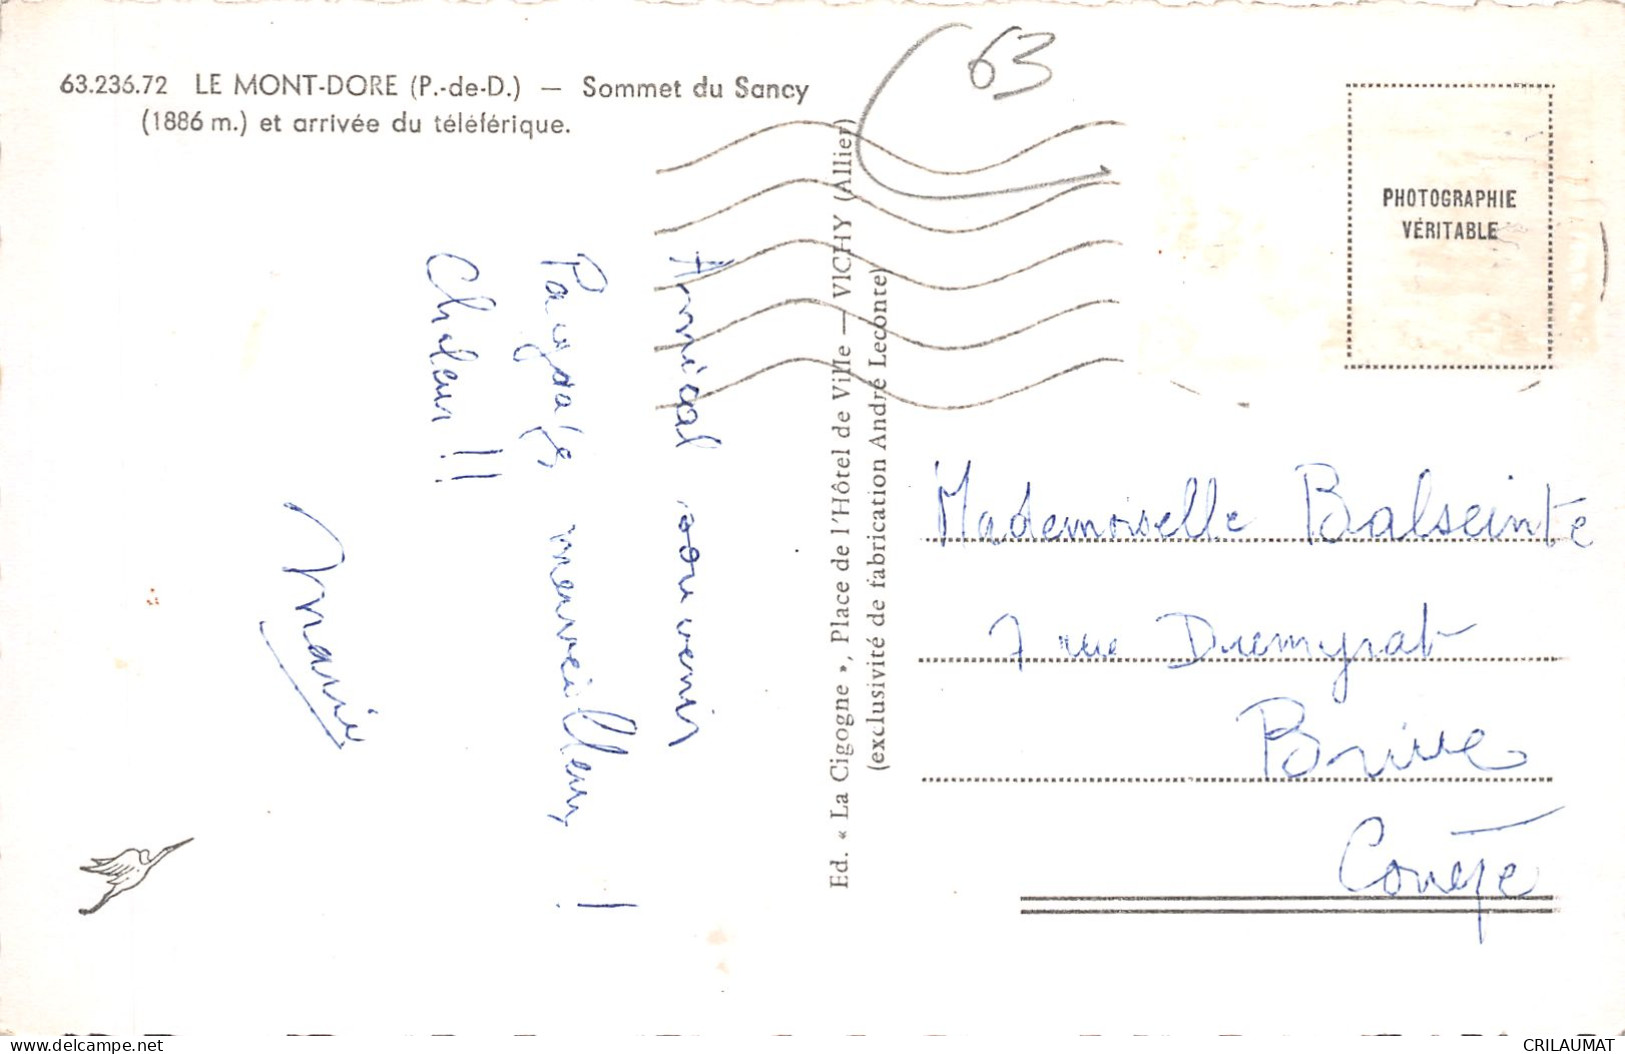 63.236.72 LE MONT-DORE (P.-de-D.) — Sommet du Sancy
(1886 m.) et arrivée du téléférique.
63
PHOTOGRAPHIE
VÉRITABLE
Amical souvenir
Paysages merveilleux !
Chaleur !!
Marie
Ed. « La Cigogne », Place de l'Hôtel de Ville — VICHY (Allier)
(exclusivité de fabrication André Leconte)
Mademoiselle Balseinte
7 rue Dremyrat
Brive
Corrèze
delcampe.net
CRILAUMAT